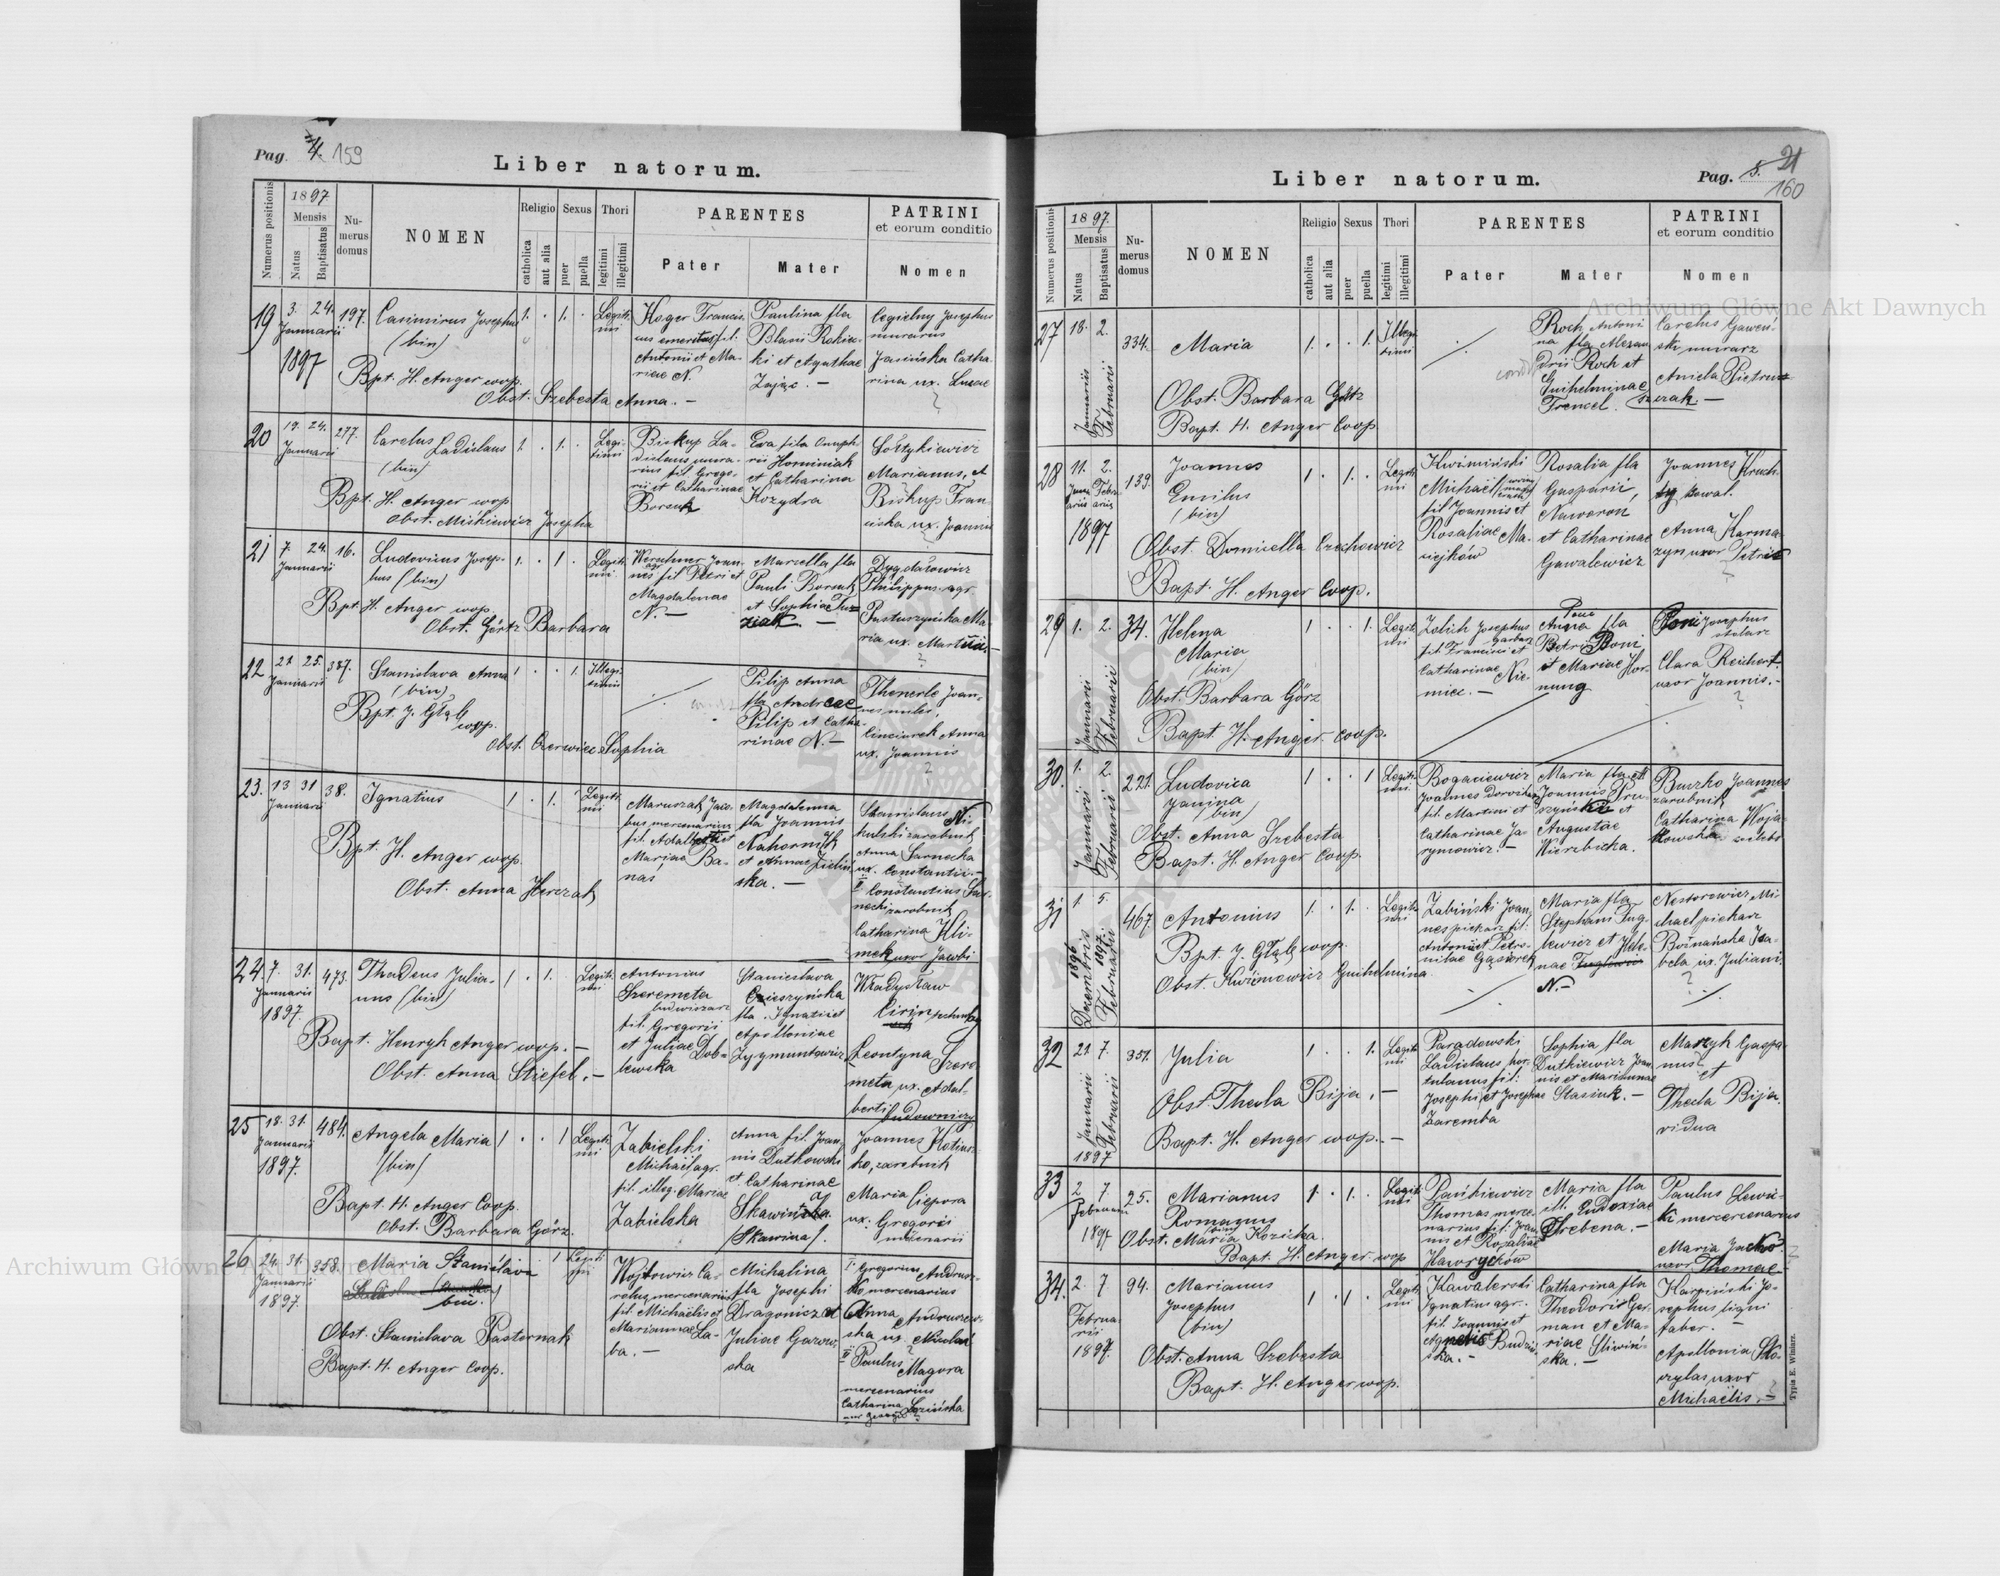 Pag. 4. 159
Liber natorum.
Numerus positionis
1897
Mensis
Natus
Baptisatus
Nu-
merus
domus
NOMEN
Religio
catholica
aut alia
Sexus
puer
puella
Thori
legitimi
illegitimi
PARENTES
Pater
Mater
PATRINI
et eorum conditio
Nomen
19
3. 24.
Januarii
1897
197.
Casimirus Josephus
(bin)
Bpt. H. Anger coop.
Obst. Szebesta Anna. -
1. . 1. .
Legiti-
mi
Antonii et Ma-
riae N.
Paulina fla
Blasii Rokic-
ki et Agathae
Zając. -
Cegielny Josephus
murarius
Jasińska Catha-
rina ux. Lucae
?
20
19. 24.
Januarii
277.
Carolus Ladislaus
(bin)
Bpt. H. Anger coop
Obst. Miśkiewicz Josepha
1. . 1. .
Legi-
timi
Biskup La-
dislaus mura-
rius fil. Grego-
rii et Catharinae
Borsuk
Eva fila Onuph-
rii Hominiak
et Catharina
Kozydra
Sołtykiewicz
Marianus, et
Biskup Fran-
ciska ux. Joannis
21
7. 24.
Januarii
16.
Ludovicus Josep-
hus (bin)
Bpt. H. Anger coop.
Obst. Görtz Barbara
1. . 1 .
Legiti-
mi
nes fil Petri et
Magdalenae
N. -
Marcella fla
Pauli Borsuk
et Sophiae Tu-
ziak. -
Dygdałowicz
Philippus agr
Pastuszyńska Ma-
ria ux. Martini. -
?
22
21 25.
Januarii
387.
Stanislava Anna
(bin)
Bpt. J. Głąb
coop.
Obst. Czerwiec Sophia
1 . . 1.
Illegi-
timi
Pilip Anna
fla Andreae
Pilip et Catha-
rinae N. -
Thenerle Joan-
nes miles,
Cinciurek Anna
ux. Joannis
?
23.
13 31
Januarii
38.
Ignatius
Bpt. H. Anger coop.
Obst. Anna Herzak
1 . 1. .
Legiti-
mi
Maruszak Jaco-
bus mercenarius
fil. Adalberti et
Mariae Ba-
naś
Magdalenna
fla Joannis
Nahornik
et Annae Zieliń-
ska. -
Stanislaus Mi-
kulski zarobnik
Anna Sarnecka
ux. Constantii. -
Constantius Sar-
necki zarobnik
Catharina Kli-
mek uxor Jacobi
24.
7. 31.
Januarii
1897.
473.
Thadeus Julia-
nus (bin)
Bapt. Henryh Anger coop. -
Obst. Anna Stiefel. -
1 . 1. .
Legiti-
mi
Antonius
Szeremeta
ludwiszarz
fil. Gregorii
et Juliae Dob-
lewska
Stanislava
Cieszyńska
fla. Ignatii et
Apolloniae
Zygmuntowicz
Władysław
Cirin
Leontyna Szere-
meta ux. Adal-
berti budowniczy
25
18. 31.
Januarii
1897.
484.
Angela Maria
(bin)
Bapt. H. Anger Coop.
Obst. Barbara Görz.
1 . . 1
Legiti-
mi
Zabielski
Michaël agr.
fil. illeg. Mariae
Zabielska
Anna fil. Joan-
nis Dutkowski
et Catharinae
Skawińska
(Skawina).
Joannes Kotiusz-
ko, zarobnik
Maria Ciepora
ux. Gregorii
26
24. 31.
Januarii
1897.
358.
Maria Stanislava
bin.)
Obst. Stanislava Pasternak
Bapt. H. Anger Coop.
1
Legiti-
mi
Wojtowicz Ca-
rolus mercenarius
fil. Michaëlis et
Mariannae La-
ba. -
Michalina
fla Josephi
Dragonicz et
Juliae Gazow-
ska
I Gregorius Andrusz-
ko mercenarius
Anna Andrusiew-
ska ux. Nicolai
II Paulus ?
Magora
mercenarius
Catharina Szzińska
Pag. 5. 21
160
Liber natorum.
Numerus positionis
1897.
Mensis
Natus
Baptisatus
Nu-
merus
domus
NOMEN
Religio
catholica
aut alia
Sexus
puer
puella
Thori
legitimi
illegitimi
PARENTES
Pater
Mater
PATRINI
et eorum conditio
Nomen
27
18. 2.
Januarii
Februarii
334.
Maria
Obst. Barbara Görtz
Bapt. H. Anger Coop
1. . . 1.
Illegi-
timi
Roch Antoni-
na fla Alexan-
drii Roch et
Guilhelminae
Frencel.
Carolus Gaweń-
ski murarz
Aniela Pietrusz-
szerak. -
28
11. 2.
Janu- Febru-
arii arii
1897
139.
Joannes
Emilus
(bin)
Obst. Domicella Czechowicz
Bapt. H. Anger Coop.
1 . 1. .
Legiti-
mi
Kwiśmiński
Michaël
fil Joannis et
Rosaliae Ma-
ciejków
Rosalia fla
Gasparii,
Naworon
et Catharinae
Gawalewicz
Joannes Kruch-
ty kowal.
Anna Karma-
zyn uxor Petri
?
29
1. 2.
Januarii
Februarii
34.
Helena
Maria
(bin)
Obst. Barbara Görz
Bapt. H. Anger coop.
1 . . 1.
Legiti-
mi
Zelich Josephus
garbarz
fil Francisci et
Catharinae Nie-
miec. -
Anna fla
Petri Boni
et Mariae Hor-
nung
Josephus
stolarz
Clara Reichert
uxor Joannis. -
?
30.
1. 2.
Januarii
Februarii
221.
Ludovica
Janina
(bin)
Obst. Anna Szebesta
Bapt. H. Anger Coop.
1 . . 1
Legiti-
mi.
Boganiewicz
fil. Martini et
Catharinae Ja-
rymowicz. -
Maria fla
Joannis Pru-
szyński et
Augustae
Wierzbicka.
Buczko Joannes
zarobnik
Catharina Woja-
kowska
31
1. 5.
1896
Decembris
1897.
Februarii
467.
Antonius
Bpt. J. Głąb coop.
Obst. Kuźniewicz Guilhelmina
1. . 1. .
Legiti-
mi
Żabiński Joan-
nes piekarz fil:
Antonii et Petro-
nilae Gąsiorek
Maria fla
Stephani Fug-
lewicz et Hele-
nae
N. -
Nestorowicz Mi-
chael piekarz
Bośnańska Iza-
bela ux. Juliani
?
32
21 7.
Januarii
1897
Februarii
351.
Julia
Obst. Thecla Bija, -
Bapt. H. Anger coop. -
1 . . 1.
Legiti-
mi
Paradowski
Ladislaus hor-
tulanus fil:
Josephi et Josephae
Zaremba
Sophia fla
Dutkiewicz Joan-
nis et Mariannae
Stasiuk. -
Maszyk Gaspa-
rus
et
Thecla Bija.
vidua
33
2 7
Februarii
1897
25.
Marianus
Romanus
(bin)
Obst. Maria Kozicka.
Bapt. H. Anger coop
1. . 1. .
Legiti-
mi
Pańkiewicz
Thomas merce-
narius fil. Joan-
nis et Rozaliae
Hawryłów
Maria fla
ill. Eudoxiae
Hrebena. -
Paulus Lewic-
ki mercenarius
Maria Jacko
uxor Thomae
?
34.
2 7
Februa-
rii
1897.
94.
Marianus
Josephus
(bin)
Obst. Anna Szebesta
Bapt. H. Anger coop.
1 . 1 .
Legiti-
mi
Kawalerski
Ignatius agr.
fil. Joannis et
Agnetis Budziń-
ska. -
Catharina fla
Theodorii Ger-
man et Ma-
riae Śliwiń-
ska. -
Karpiński Jo-
sephus ligni
faber. -
Apollonia Sko-
czylas uxor
Michaëlis. -
Typis E. Winiarz.
Archiwum Główne Akt Dawnych
Archiwum Główne Akt Dawnych